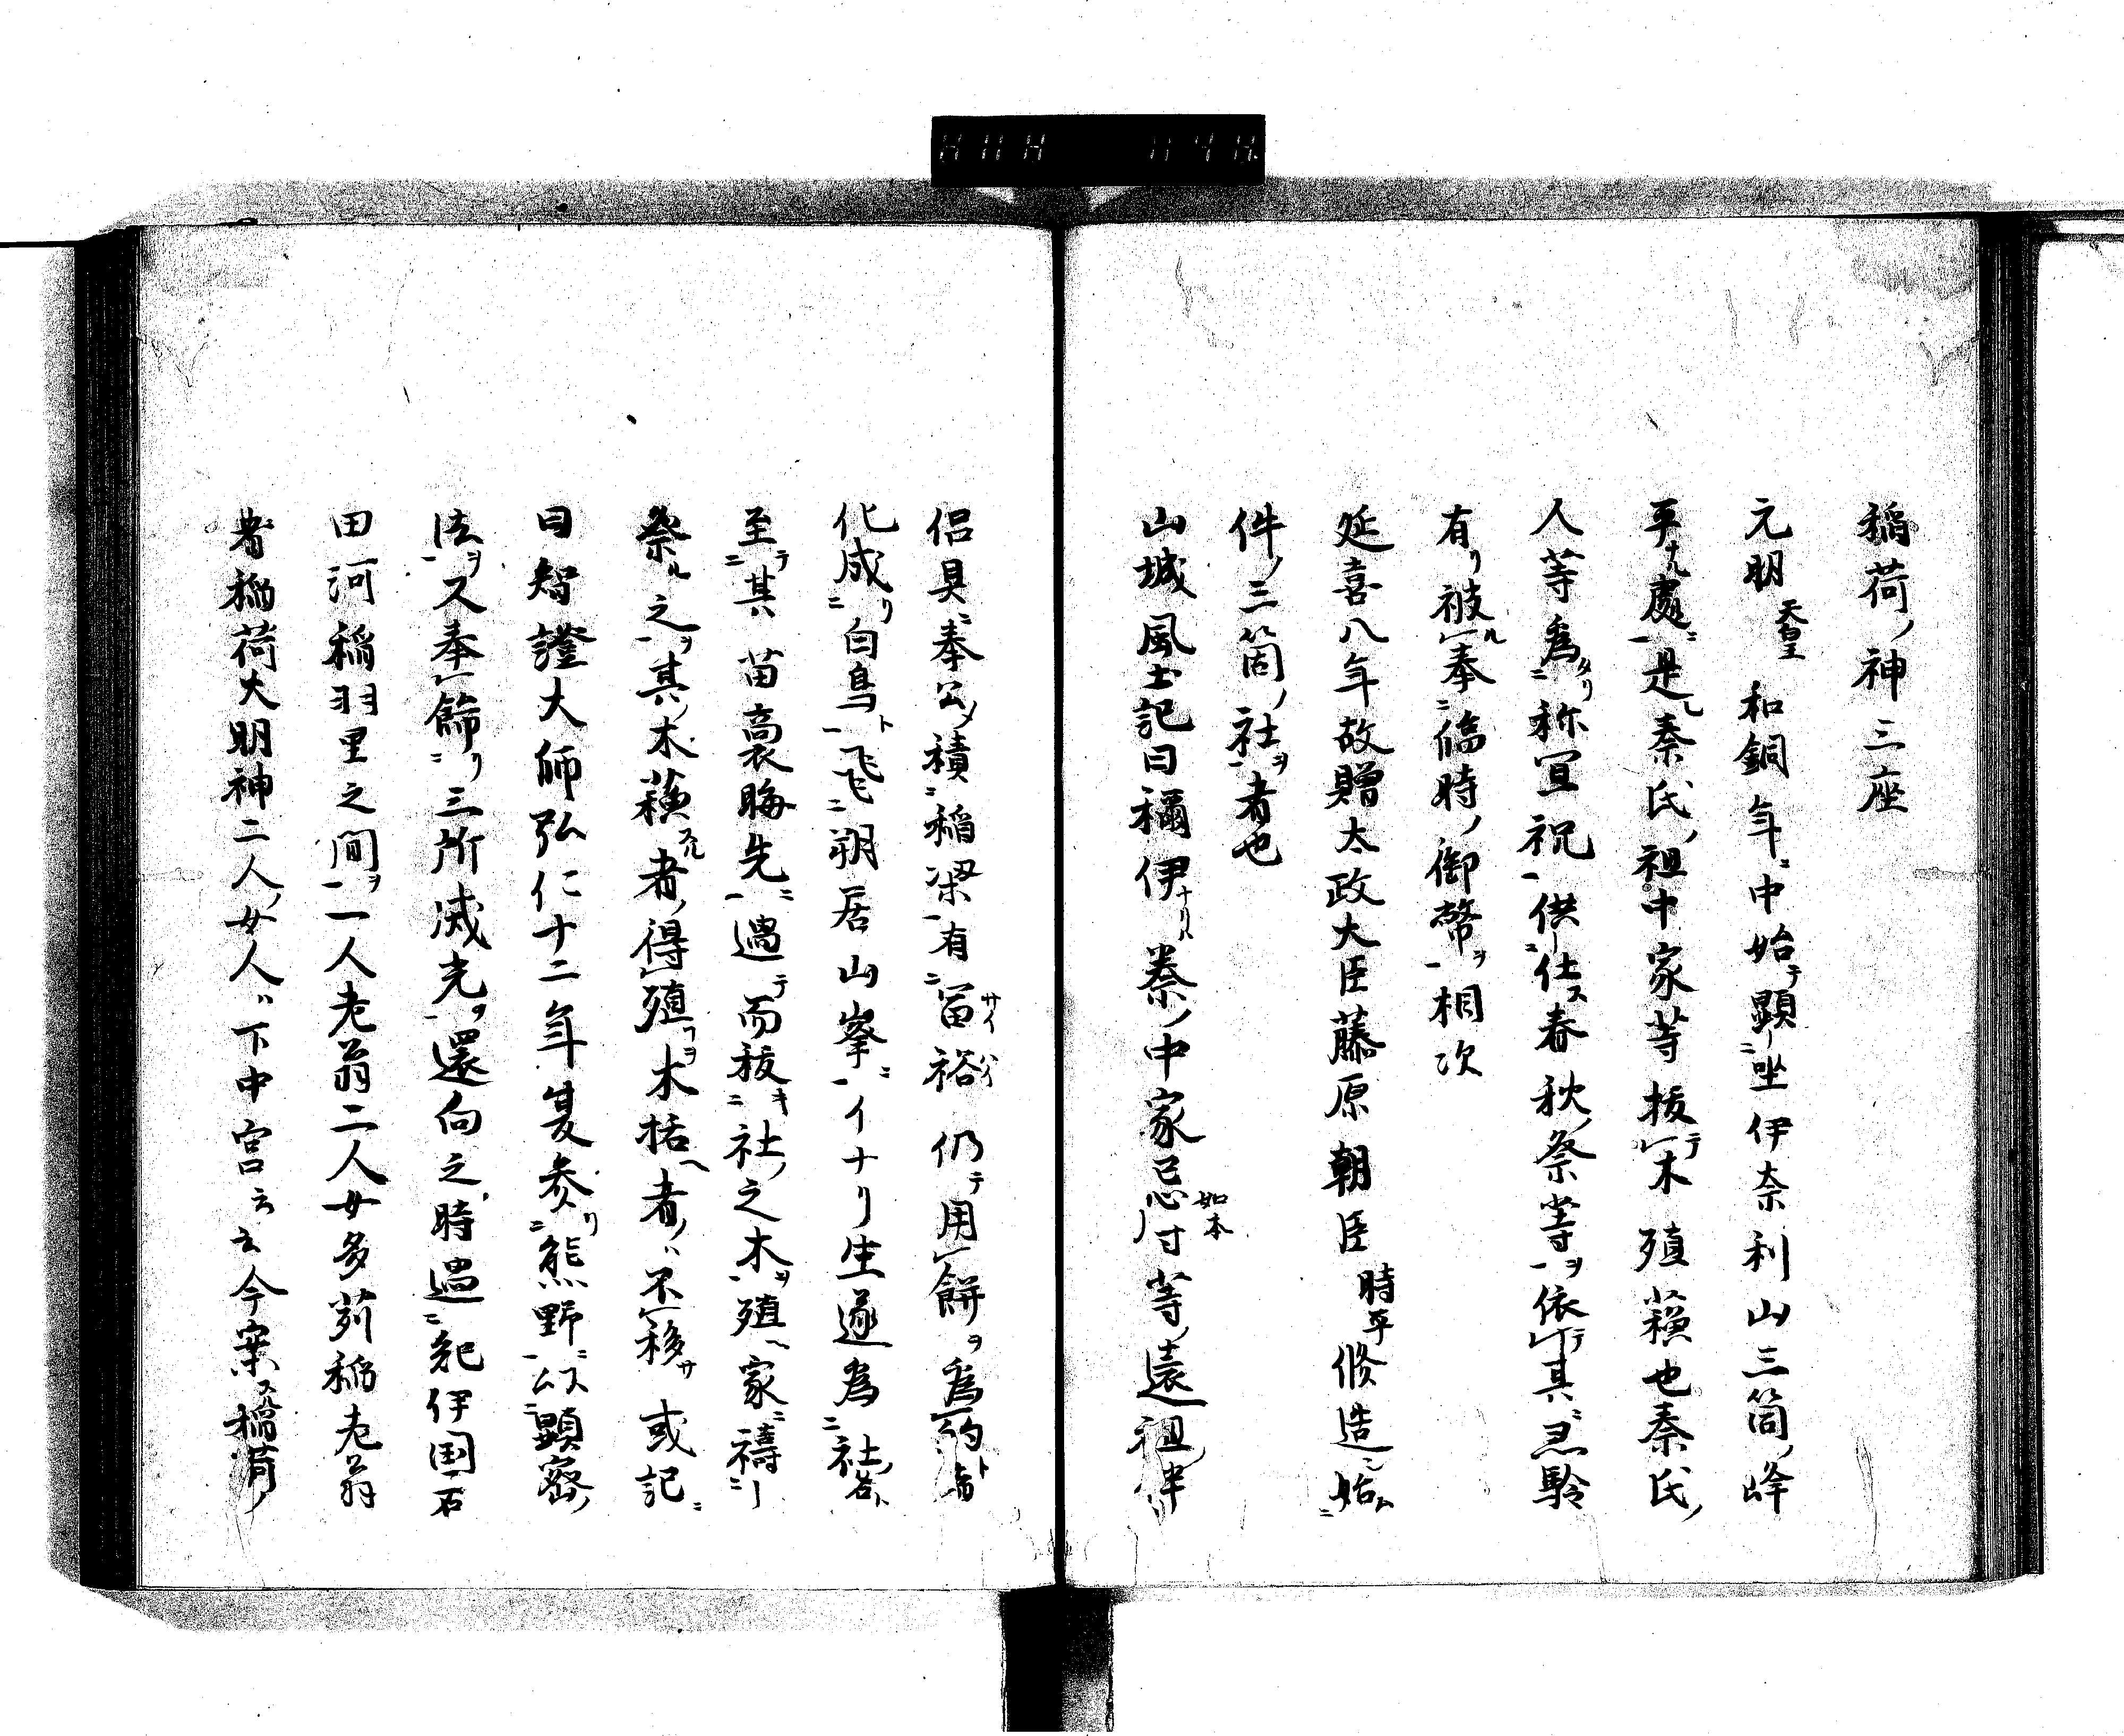 稲荷ノ神三座
元明天皇和銅年ニ中始テ顕ニ坐伊奈利山三箇ノ峰
平ナル處ニ一是レ秦氏ノ祖中家等抜テレ木殖蘓也秦氏ノ
人等為ニタリ称宜祝一供ニ仕ス春秋ノ祭等ヲ一依テレ其ニ霊験
有リ被ルレ奉ニ臨時ノ御幣ヲ一相次
延喜八年故贈太政大臣藤原朝臣時平修造シ始ム
件ノ三箇ノ社ヲ一者也
山城風土記曰稱伊ナリハ秦ノ中家忌寸等ノ遠祖伊
侶具ニ奉公ノ積ニ稲梁一有ニ富裕サイハイ仍テ用レ餅ヲ為レ的ト者
化成ニリ白鳥ト一飛ニ翔居山峯ニ一イナリ生遂為ニ社ノ名ト
至ニテ其苗裔悔先ニ一過テ而抜ニキ社ノ之木ヲ一殖ヘ家ニ祷ニリ
祭ル之ヲ一其ノ木蘓スル者ノ得レ殖フヲ木枯ヘ者ノハ不レ移サ或記ニ
曰智證大師弘仁十二年夏参ニリ熊野ニ一以ス顕密ノ
法ヲ一又奉レ餝ニリ三所威光ヲ一還向之時過ニ紀伊国石
田河稲羽里之間ヲ一一人老翁二人女多苅稲老翁
者稲荷大明神二人ノ女人ハ下中宮云云今案スルニ稲荷ノ